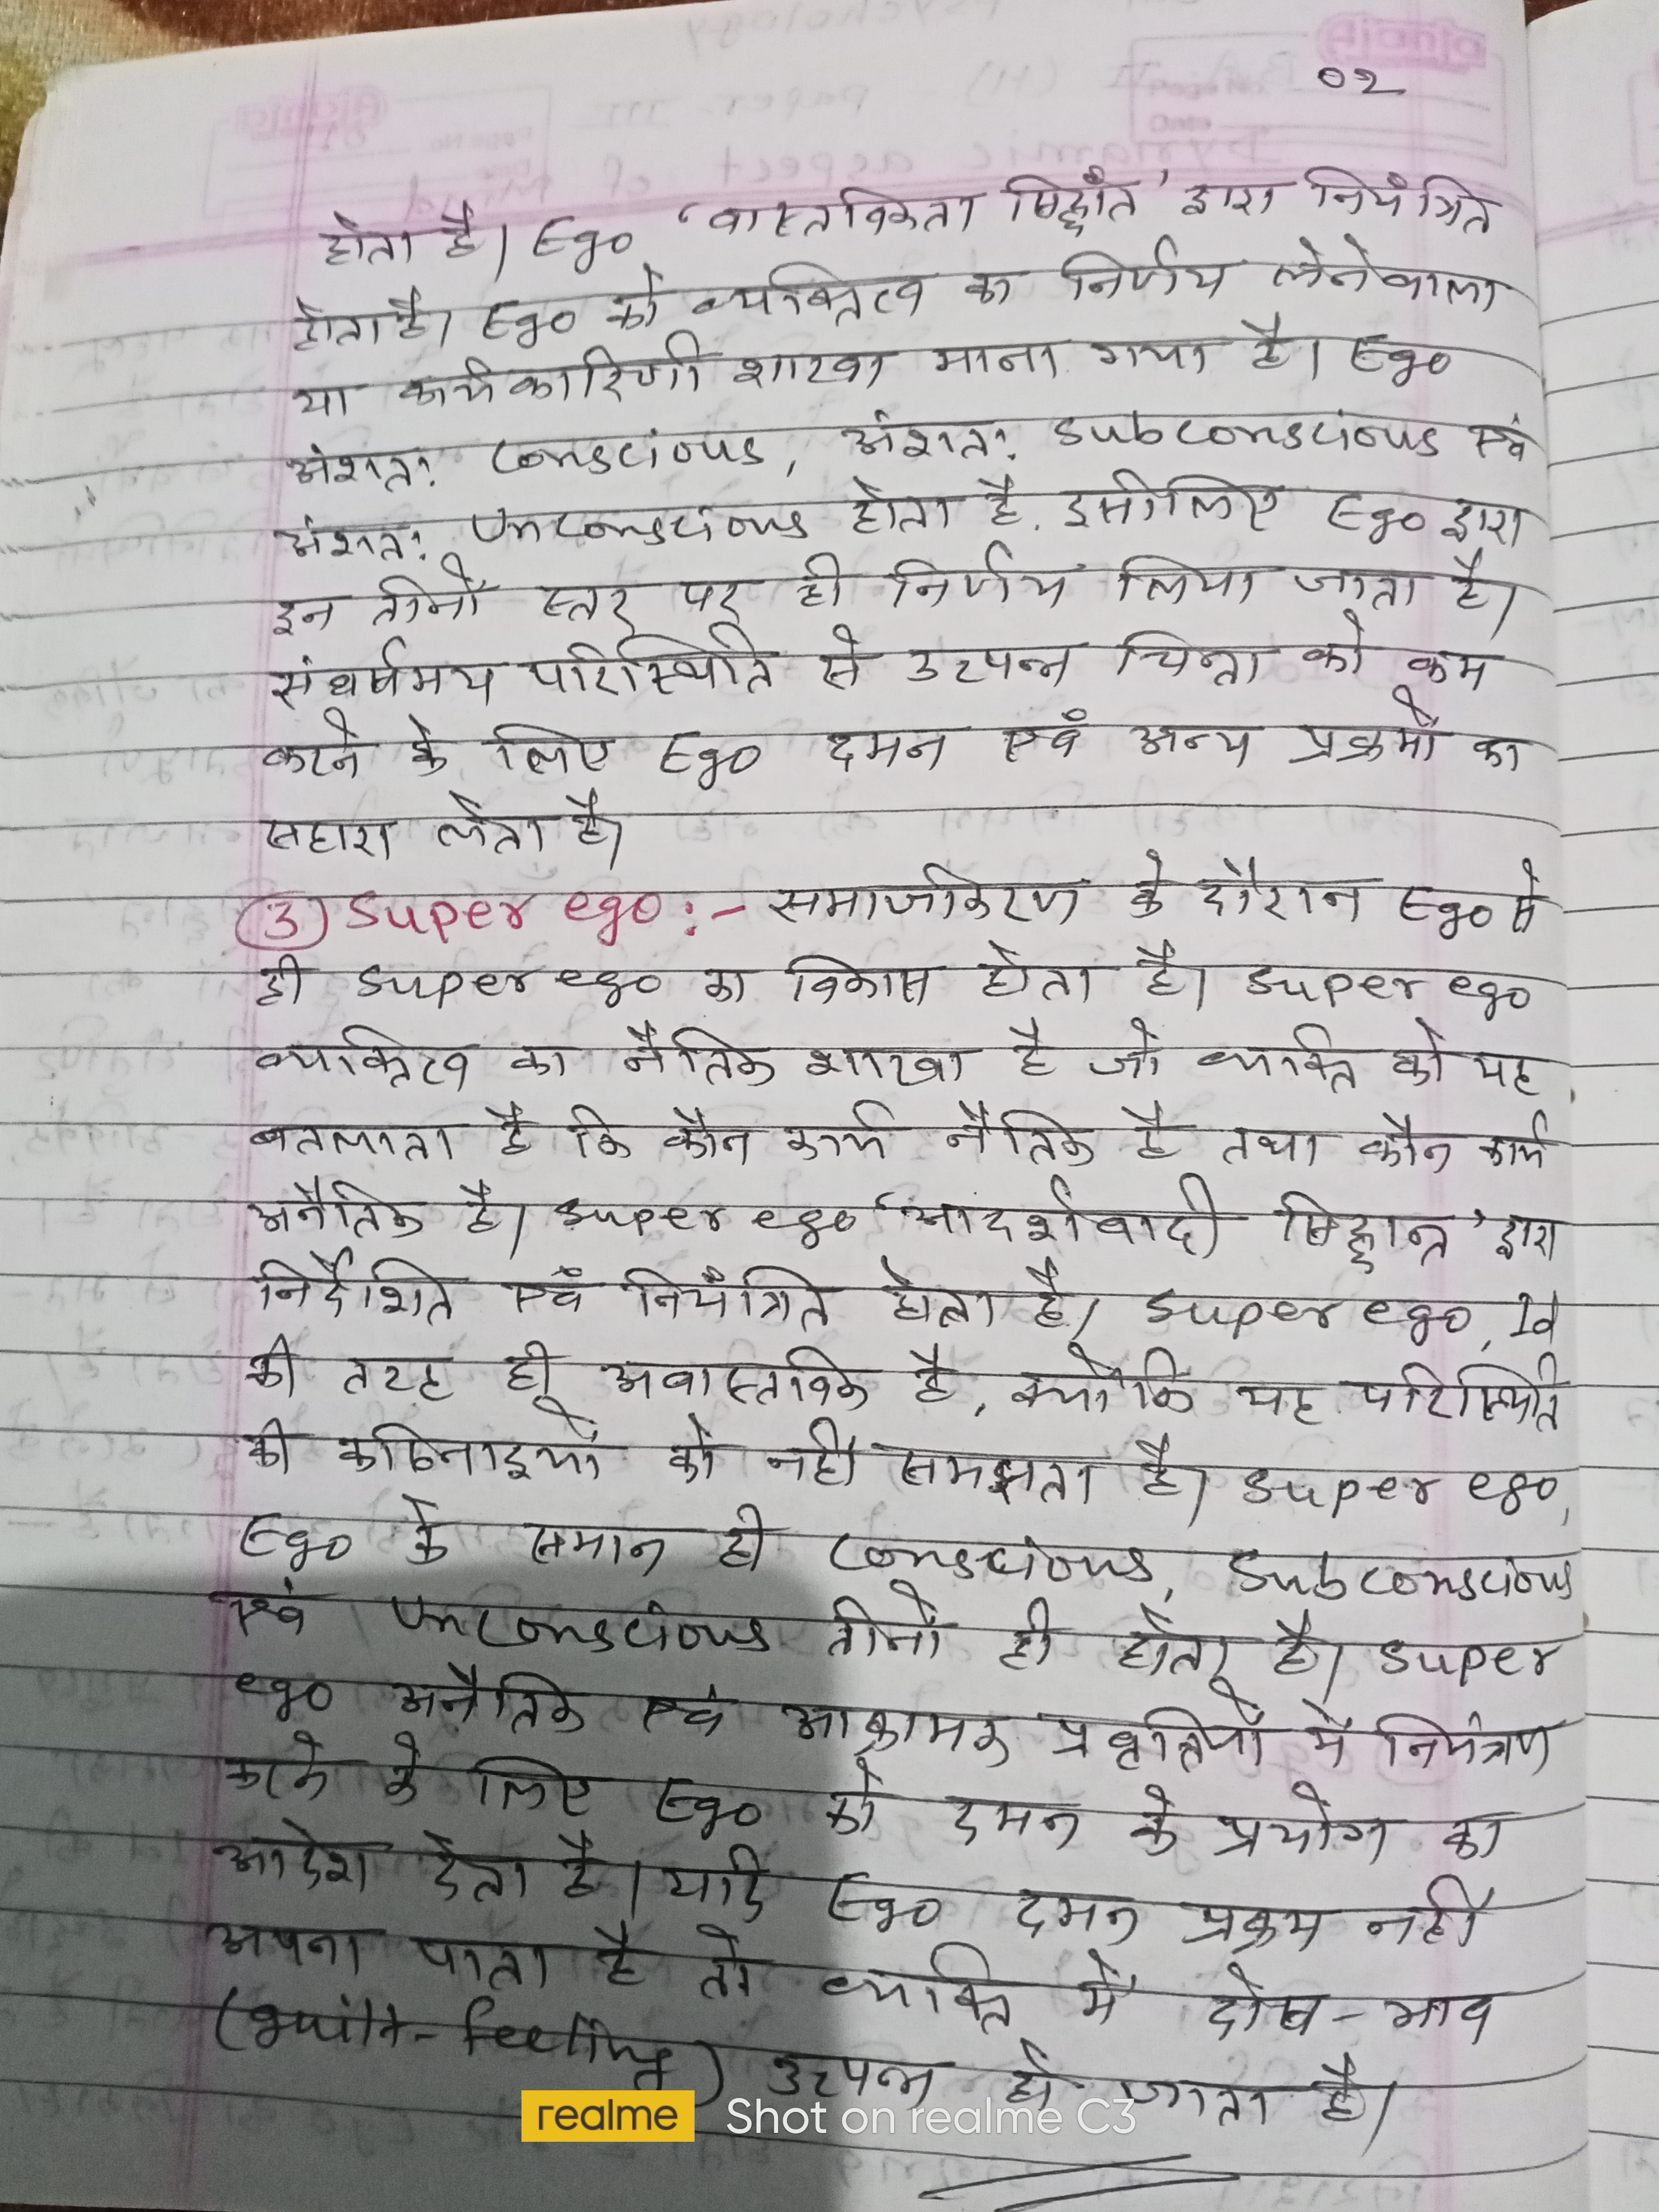 02
होता है। Ego 'वास्तविकता सिद्धाँत' द्वारा नियंत्रित
होता है। Ego को व्यक्तित्व का निर्णय लेनेवाला
या कार्यकारिणी शाखा माना गया है। Ego
अंशतः conscious, अंशतः subconscious एवं
अंशतः Unconscious होता है. इसीलिए Ego द्वारा
इन तीनों स्तर पर ही निर्णय लिया जाता है।
संघर्षमय परिस्थिति से उत्पन्न चिन्ता को कम
करने के लिए Ego दमन एवं अन्य प्रक्रमों का
सहारा लेता है।
(3) Super ego :- समाजीकरण के दौरान Ego से
ही super ego का विकास होता है। super ego
व्यक्तित्व का नैतिक शाखा है जो व्यक्ति को यह
बतलाता है कि कौन कार्य नैतिक है तथा कौन कार्य
अनैतिक है। super ego 'आदर्शवादी सिद्धान्त' द्वारा
निर्देशित एवं नियंत्रित होता है। super ego, Id
की तरह ही अवास्तविक है, क्योंकि यह परिस्थिति
की कठिनाइयों को नहीं समझता है। super ego,
Ego के समान ही conscious, subconscious
एवं Unconscious तीनों ही होता है। super
ego अनैतिक एवं आक्रामक प्रवृतियों में नियंत्रण
करने के लिए Ego को दमन के प्रयोग का
आदेश देता है। यदि Ego दमन प्रक्रम नहीं
अपना पाता है तो व्यक्ति में दोष-भाव
(guilt-feeling) उत्पन्न हो जाता है।
realme Shot on realme C3